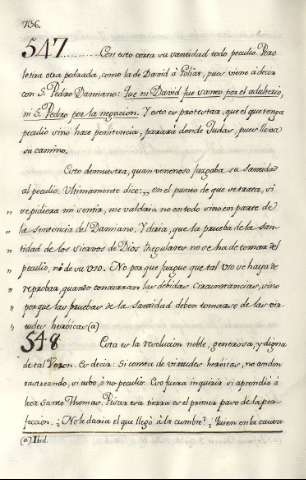 736.
547......... Con esto corta su santidad todo peculio. Pero
le tira otra pedrada, como la de David à Goliat, pues viene à decir
con S. Pedro Damiano: que ni David fue santo por el adulterio,
ni S. Pedro por la negacion. Y esto es protestar, que el que tenga
peculio sino hace penitencia, parará donde Judas, pues lleva
su camino.
Esto demuestra, quan venenoso juzgaba su santidad
al peculio. Ultimamente dice: ,, en el punto de que se trata, si
,, se pidiera mi sentir, me valdria no en todo sino en parte de
,, la sentencia del Damiano. Y diria, que la prueba de la san-
,, tidad de los siervos de Dios Regulares no se ha de tomar del
,, peculio, ni de su uso. No porque juzgue que tal uso se haya de
,, reprobar, quando concurran las debidas circunstancias, sino
,, porque las pruebas de la santidad deben tomarse de las vir-
,, tudes heróicas (a)
548......... Esta es la resolucion noble, generosa, y digna
de tal Varon. Es decia: Si corrió de virtudes heróicas, no anden
rastreando, si tubo ò no peculio. Eso fuera inquirir si aprendió à
leer Santo Thomas. Pisar esa tierra es el primer paso de la per-
feccion. ¿No le daria el que llegò à la cumbre? ¿Quien en la causa
(a) Ibid.